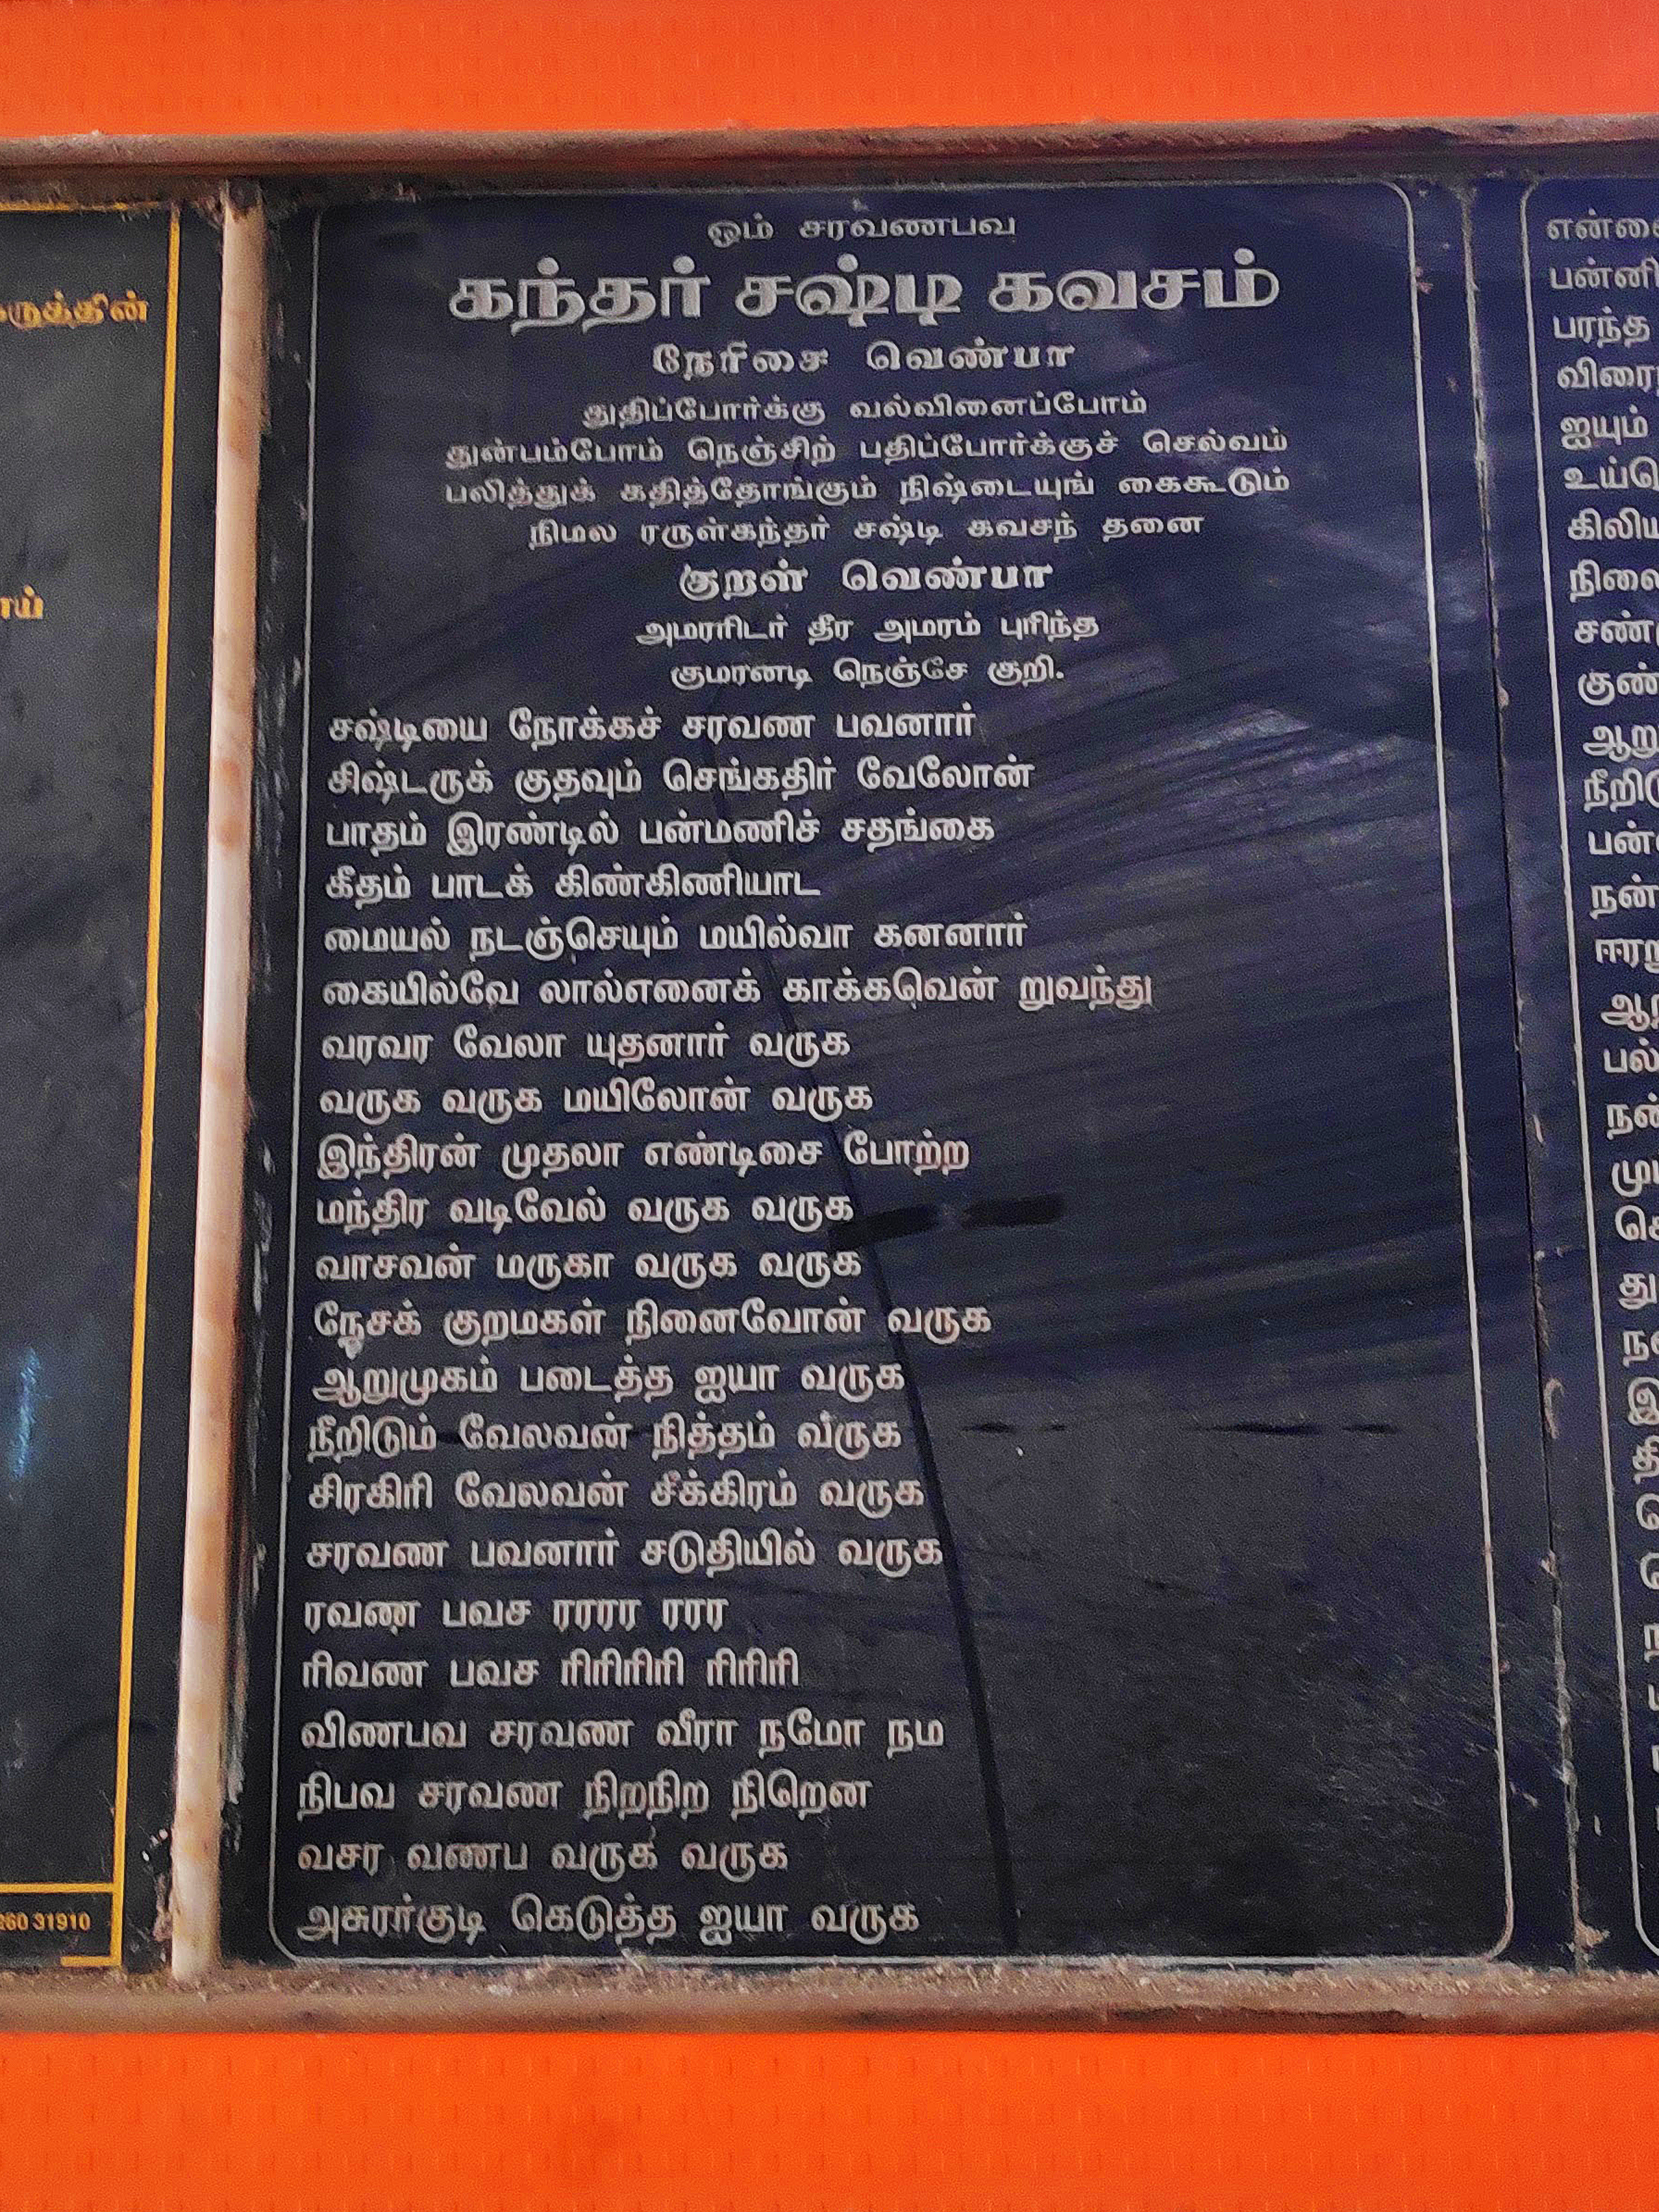 ருத்தின்
ாய்
260 31910
ஓம் சரவணபவ
கந்தர் சஷ்டி கவசம்
நேரிசை வெண்பா
துதிப்போர்க்கு வல்வினைப்போம்
துன்பம்போம் நெஞ்சிற் பதிப்போர்க்குச் செல்வம்
பலித்துக் கதித்தோங்கும் நிஷ்டையுங் கைகூடும்
நிமல ரருள்கந்தர் சஷ்டி கவசந் தனை
குறள் வெண்பா
அமரரிடர் தீர அமரம் புரிந்த
குமரனடி நெஞ்சே குறி.
சஷ்டியை நோக்கச் சரவண பவனார்
சிஷ்டருக் குதவும் செங்கதிர் வேலோன்
பாதம் இரண்டில் பன்மணிச் சதங்கை
கீதம் பாடக் கிண்கிணியாட
மையல் நடஞ்செயும் மயில்வா கனனார்
கையில்வே லால்எனைக் காக்கவென் றுவந்து
வரவர வேலா யுதனார் வருக
வருக வருக மயிலோன் வருக
இந்திரன் முதலா எண்டிசை போற்ற
மந்திர வடிவேல் வருக வருக
வாசவன் மருகா வருக வருக
நேசக் குறமகள் நினைவோன் வருக
ஆறுமுகம் படைத்த ஐயா வருக
நீறிடும் வேலவன் நித்தம் வருக
சிரகிரி வேலவன் சீக்கிரம் வருக
சரவண பவனார் சடுதியில் வருக
ரவண பவச ரரரர ரரர
ரிவண பவச ரிரிரிரி ரிரிரி
விணபவ சரவண வீரா நமோ நம
நிபவ சரவண நிறநிற நிறென
வசர வணப வருக வருக
அசுரர்குடி கெடுத்த ஐயா வருக
என்னை
பன்னி
பரந்த
விரை
ஐயும்
உய்
கிலிய
நிலை
சண்
குண்
ஆறு
நீறிடு
பன்
நன்
ஈரறு
ஆறு
பல்
நன்
மு
செ
து